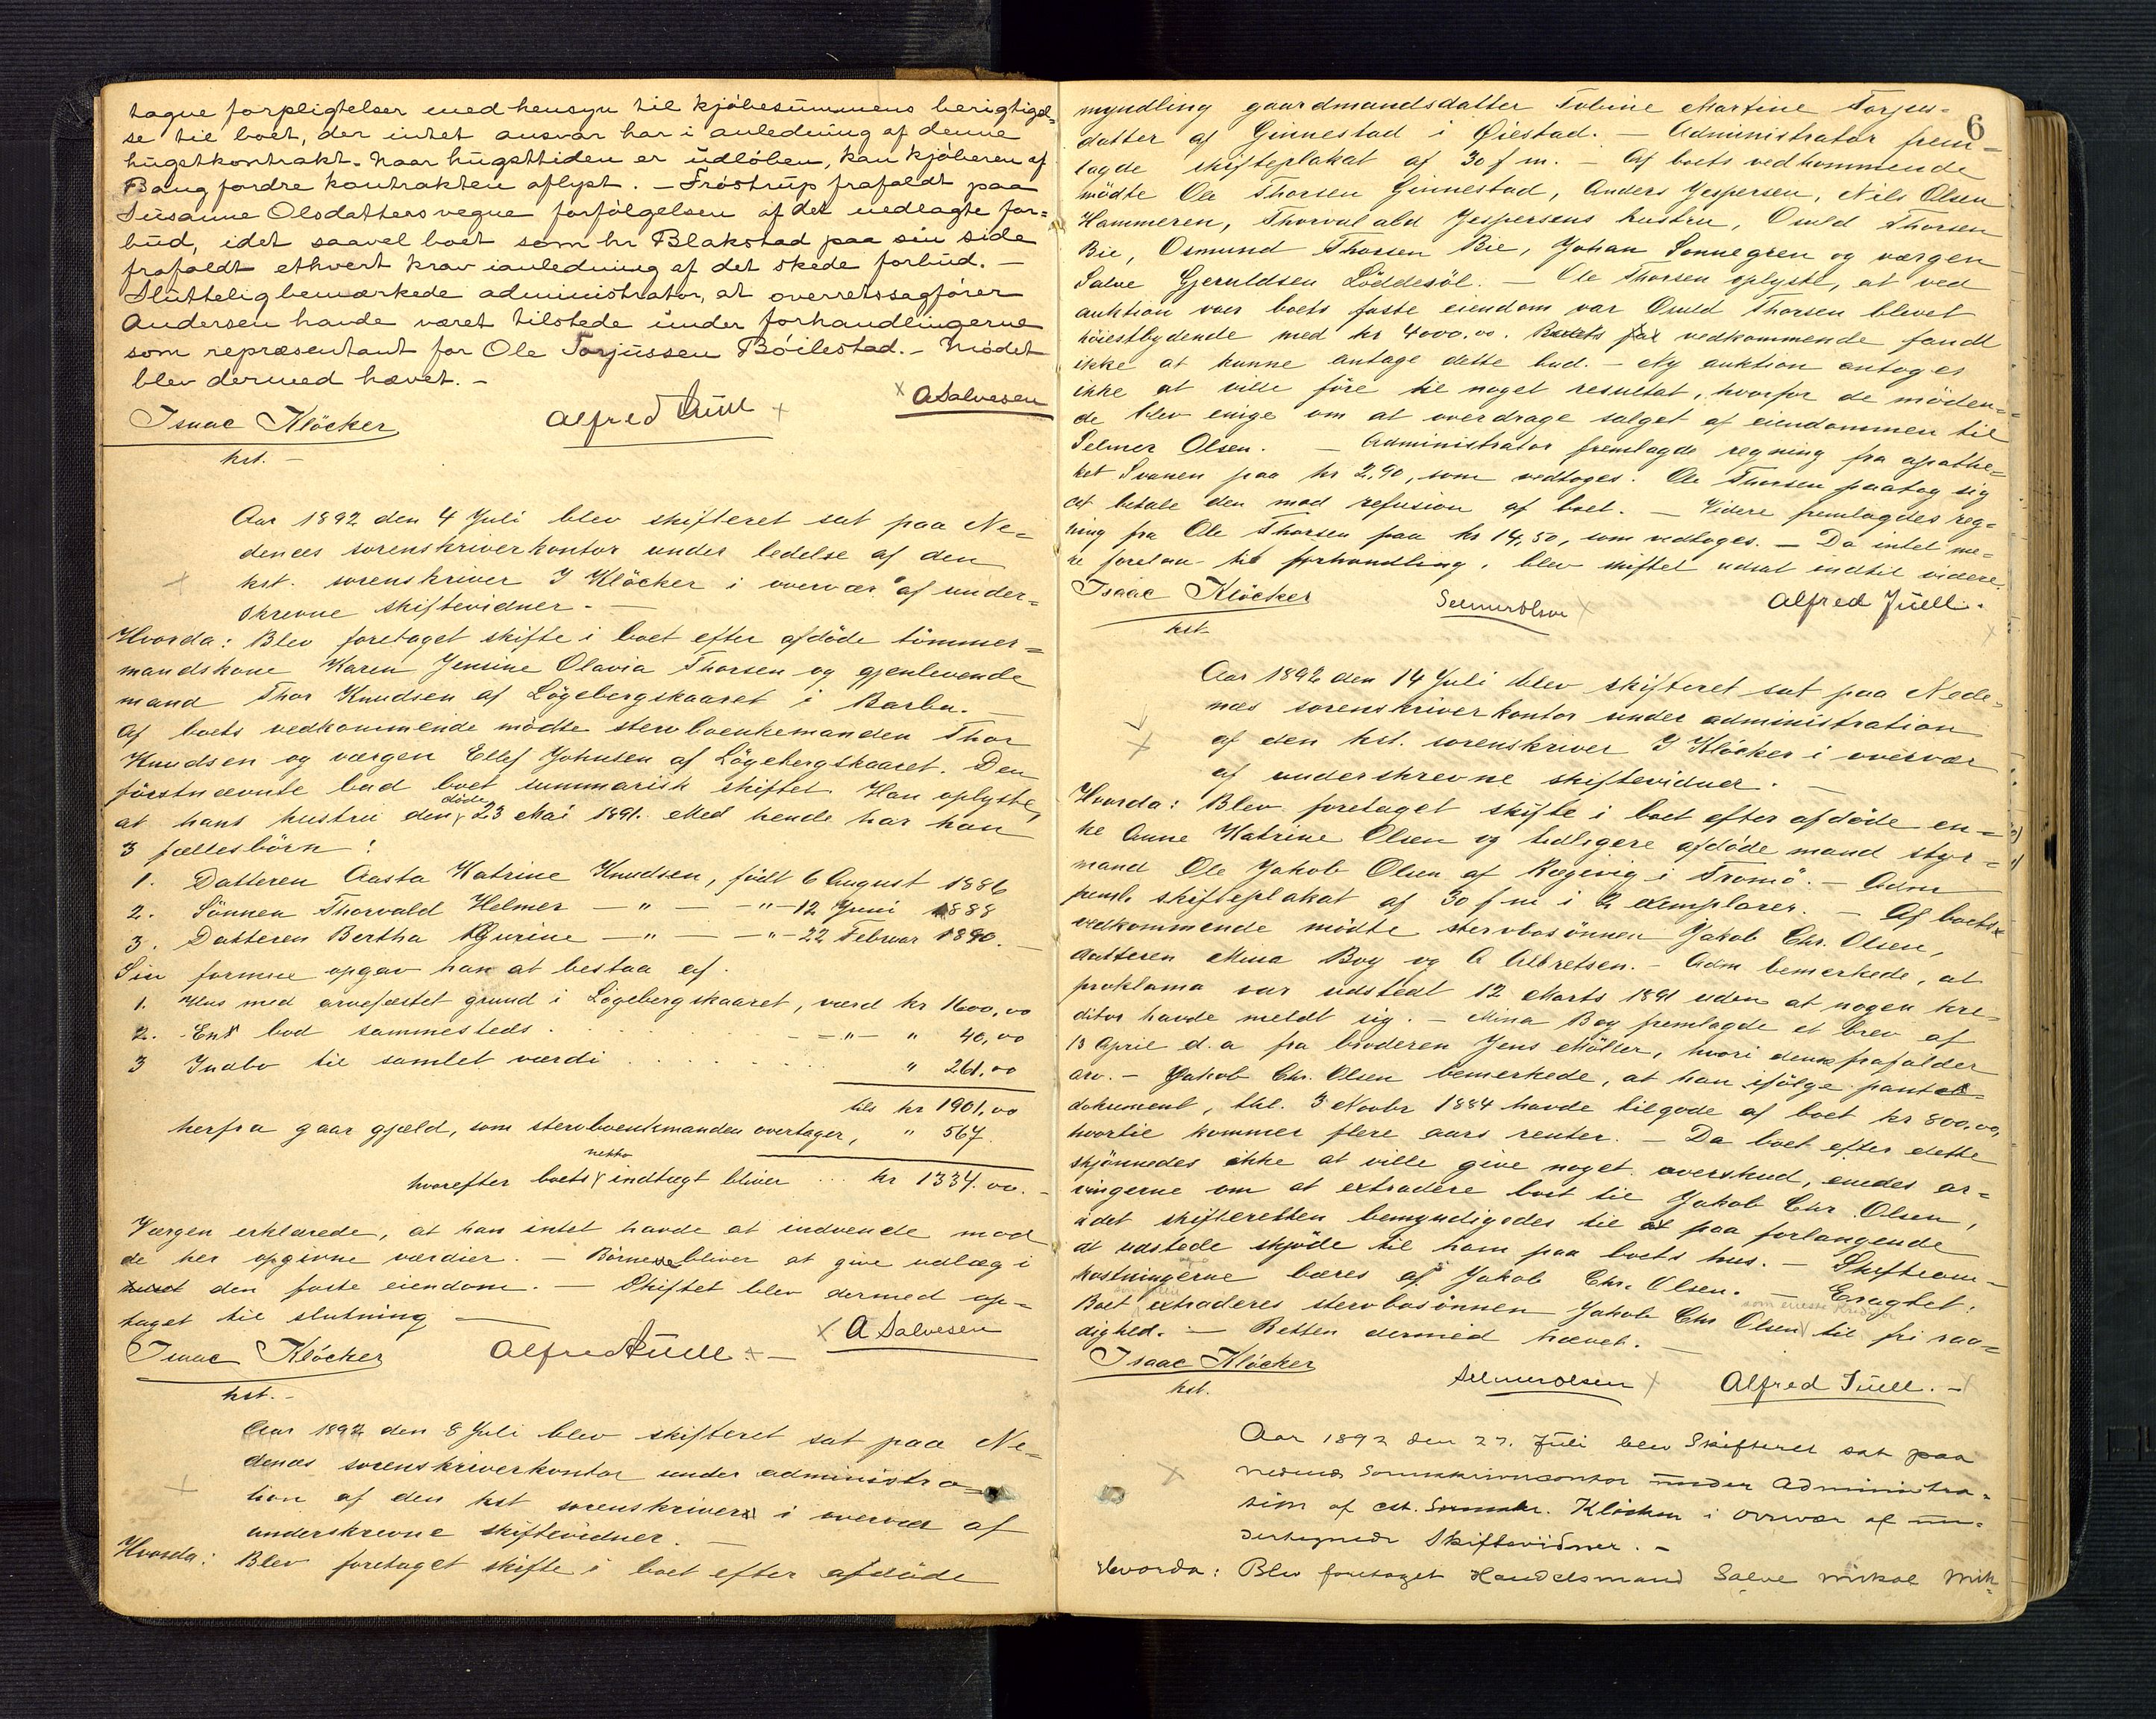 tagne forpligtelser med hensyn til kjöbesummens berigtigel=
se til boet, der intet ansvar har i anledning af denne
hugstkontrakt. Naar hugsttiden er udlöben, kan kjöberen af
Baug fordre kontrakten aflyst. – Fröstrup frafaldt paa
Susanne Olsdatters vegne forfölgelsen af det nedlagte for=
bud, idet saavel boet som hr Blakstad paa sin side
frafaldt ethvert krav ianledning af det skede forbud. –
Slutteligbemærkede administrator, at overretssagförer
Andersen havde været tilstede under forhandlingerne
som repræsentant for Ole Torjussen Böilestad. – Mödet
blev dermed hævet. –
Isaac Klöcker Alfred Juell x x ASalvesen
kst. –
Aar 1892 den 4 Juli blev skifteret sat paa Ne=
denæs sorenskriverkontor under ledelse af den
kst. sorenskriver I Klöcker i overvær af under=
skrevne skiftevidner. –
Hvorda: Blev foretaget skifte i boet efter afdöde tömmer=
mandskone Karen Jensine Olavia Thorsen og gjenlevende
mand Thor Knudsen af Lögebergskaaret i Barbu. –
Af boets vedkommende mödte stervboenkemanden Thor
Knudsen og værgen Ellef Johnsen af Lögebergskaaret. Den
förstnævnte bad boet summarisk skiftet. Han oplyste,
at hans hustru döde den 23 Mai 1891. Med hende har han
3 fællesbörn:
1. Datteren Aasta Katrine Knudsen, födt 6 August 1886
2. Sönnen Thorvald Helmer – " – – " – 12 Juni 1888
3. Datteren Bertha Gurine – " – – " – 22 Februar 1890. –
Sin formue opgav han at bestaa af.
1. Hus med arvefæstet grund i Lögebergskaaret, værd kr 1600,00
2. En bod sammesteds . . . – " – " 40,00
3 Indbo til samlet værdi . . . . " 261.00
tils kr 1901,00
herfra gaar gjæld, som stervboenkemanden overtager, " 567.
hvorefter boets netto indtægt bliver ... kr 1334.00. –
Værgen erklærede, at han intet havde at indvende mod
de her opgivne værdier. – Börnene bliver at give udlæg i
den faste eiendom. – Skiftet blev dermed op=
taget til slutning –
Isaac Klöcker Alfred Juell x – x A Salvesen
kst. –
Aar 1892 den 8 Juli blev skifteret sat paa Ne=
denæs sorenskriverkontor under administra=
tion af den kst sorenskriver i overvær af
underskrevne skiftevidner. –
Hvorda: Blev foretaget skifte i boet efter afdöde
6
myndling gaardmandsdatter Tobine Martine Torjus=
datter af Ginnestad i Öiestad. – Administrator frem=
lagde skifteplakat af 30 f m. – Af boets vedkommende
mödte Ole Thorsen Ginnestad, Anders Jespersen, Nils Olsen
Hammeren, Thorvald Jespersens hustru, Osuld Thorsen
Bie, Osmund Thorsen Bie, Johan Sonnegren og værgen
Salve Gjeruldsen Löddesöl. – Ole Thorsen oplyste, at ved
auktion over boets faste eiendom var Osuld Thorsen blevet
höiestbydende med kr 4000.00. Boets vedkommende fandt
ikke at kunne antage dette bud. – Ny auktion antoges
ikke at ville före til noget resultat, hvorfor de möden=
de blev enige om at overdrage salget af eiendommen til
Selmer Olsen. – Administrator fremlagde regning fra apothe=
ket Svanen paa kr 2,90, som vedtoges. Ole Thorsen paatog sig
at betale den mod refusion af boet. – Videre fremlagdes reg=
ning fra Ole Thorsen paa kr 14,50, som vedtoges. – Da intet me=
re forelaa til forhandling, blev skiftet udsat indtil videre.
Isaac Klöcker SelmerOlsen x Alfred Juell.
kst. x
Aar 1892 den 14 Juli blev skifteret sat paa Nede=
næs sorenskriverkontor under administration
af den kst. sorenskriver I Klöcker i overvær
af underskrevne skiftevidner. –
Hvorda: Blev foretaget skifte i boet efter afdöde en=
ke Anne Katrine Olsen og tidligere afdöde mand styr=
mand Ole Jakob Olsen af Rægevig i Tromö. – Adm
freml. skifteplakat af 30 f m i 2 exemplarer. – Af boets
vedkommende mödte stervbosönnen Jakob Chr. Olsen,
datteren Mina Boy og A Albretsen. – Adm bemerkede, at
proklama var udstedt 12 Marts 1891 uden at nogen kre=
ditor havde meldt sig. – Mina Boy fremlagde et brev af
13 April d. a fra broderen Jens Möller, hvori denne frafalder
arv. – Jakob Chr. Olsen bemerkede, at han ifölge pante=
dokument, thl. 3 Novbr 1884 havde tilgode af boet kr 800.00,
hvortil kommer flere aars renter. – Da boet efter dette
skjönnedes ikke at ville give noget overskud, enedes ar=
vingerne om at extradere boet til Jakob Chr. Olsen,
idet skifteretten bemyndigedes til paa forlangende
at udstede skjöde til ham paa boets hus. – Skifteom=
kostningerne bæres af Jakob Chr. Olsen. – Eragtet:
Boet extraderes stervbosönnen Jakob Chr Olsen som eneste Kreditor til fri raa=
dighed. – Retten dermed hævet. –
Isaac Klöcker SelmerOlsen x Alfred Juell. – x
kst.
Aar 1892 den 27. Juli blev Skifteret sat paa
Nedenæs Sorenskriverkontor under Administra=
tion af cst. Sorenskr. Klöcker i overvær af un=
dertegnede Skiftevidner. –
Hvorda: Blev foretaget Handelsmand Salve Mikal Mik=